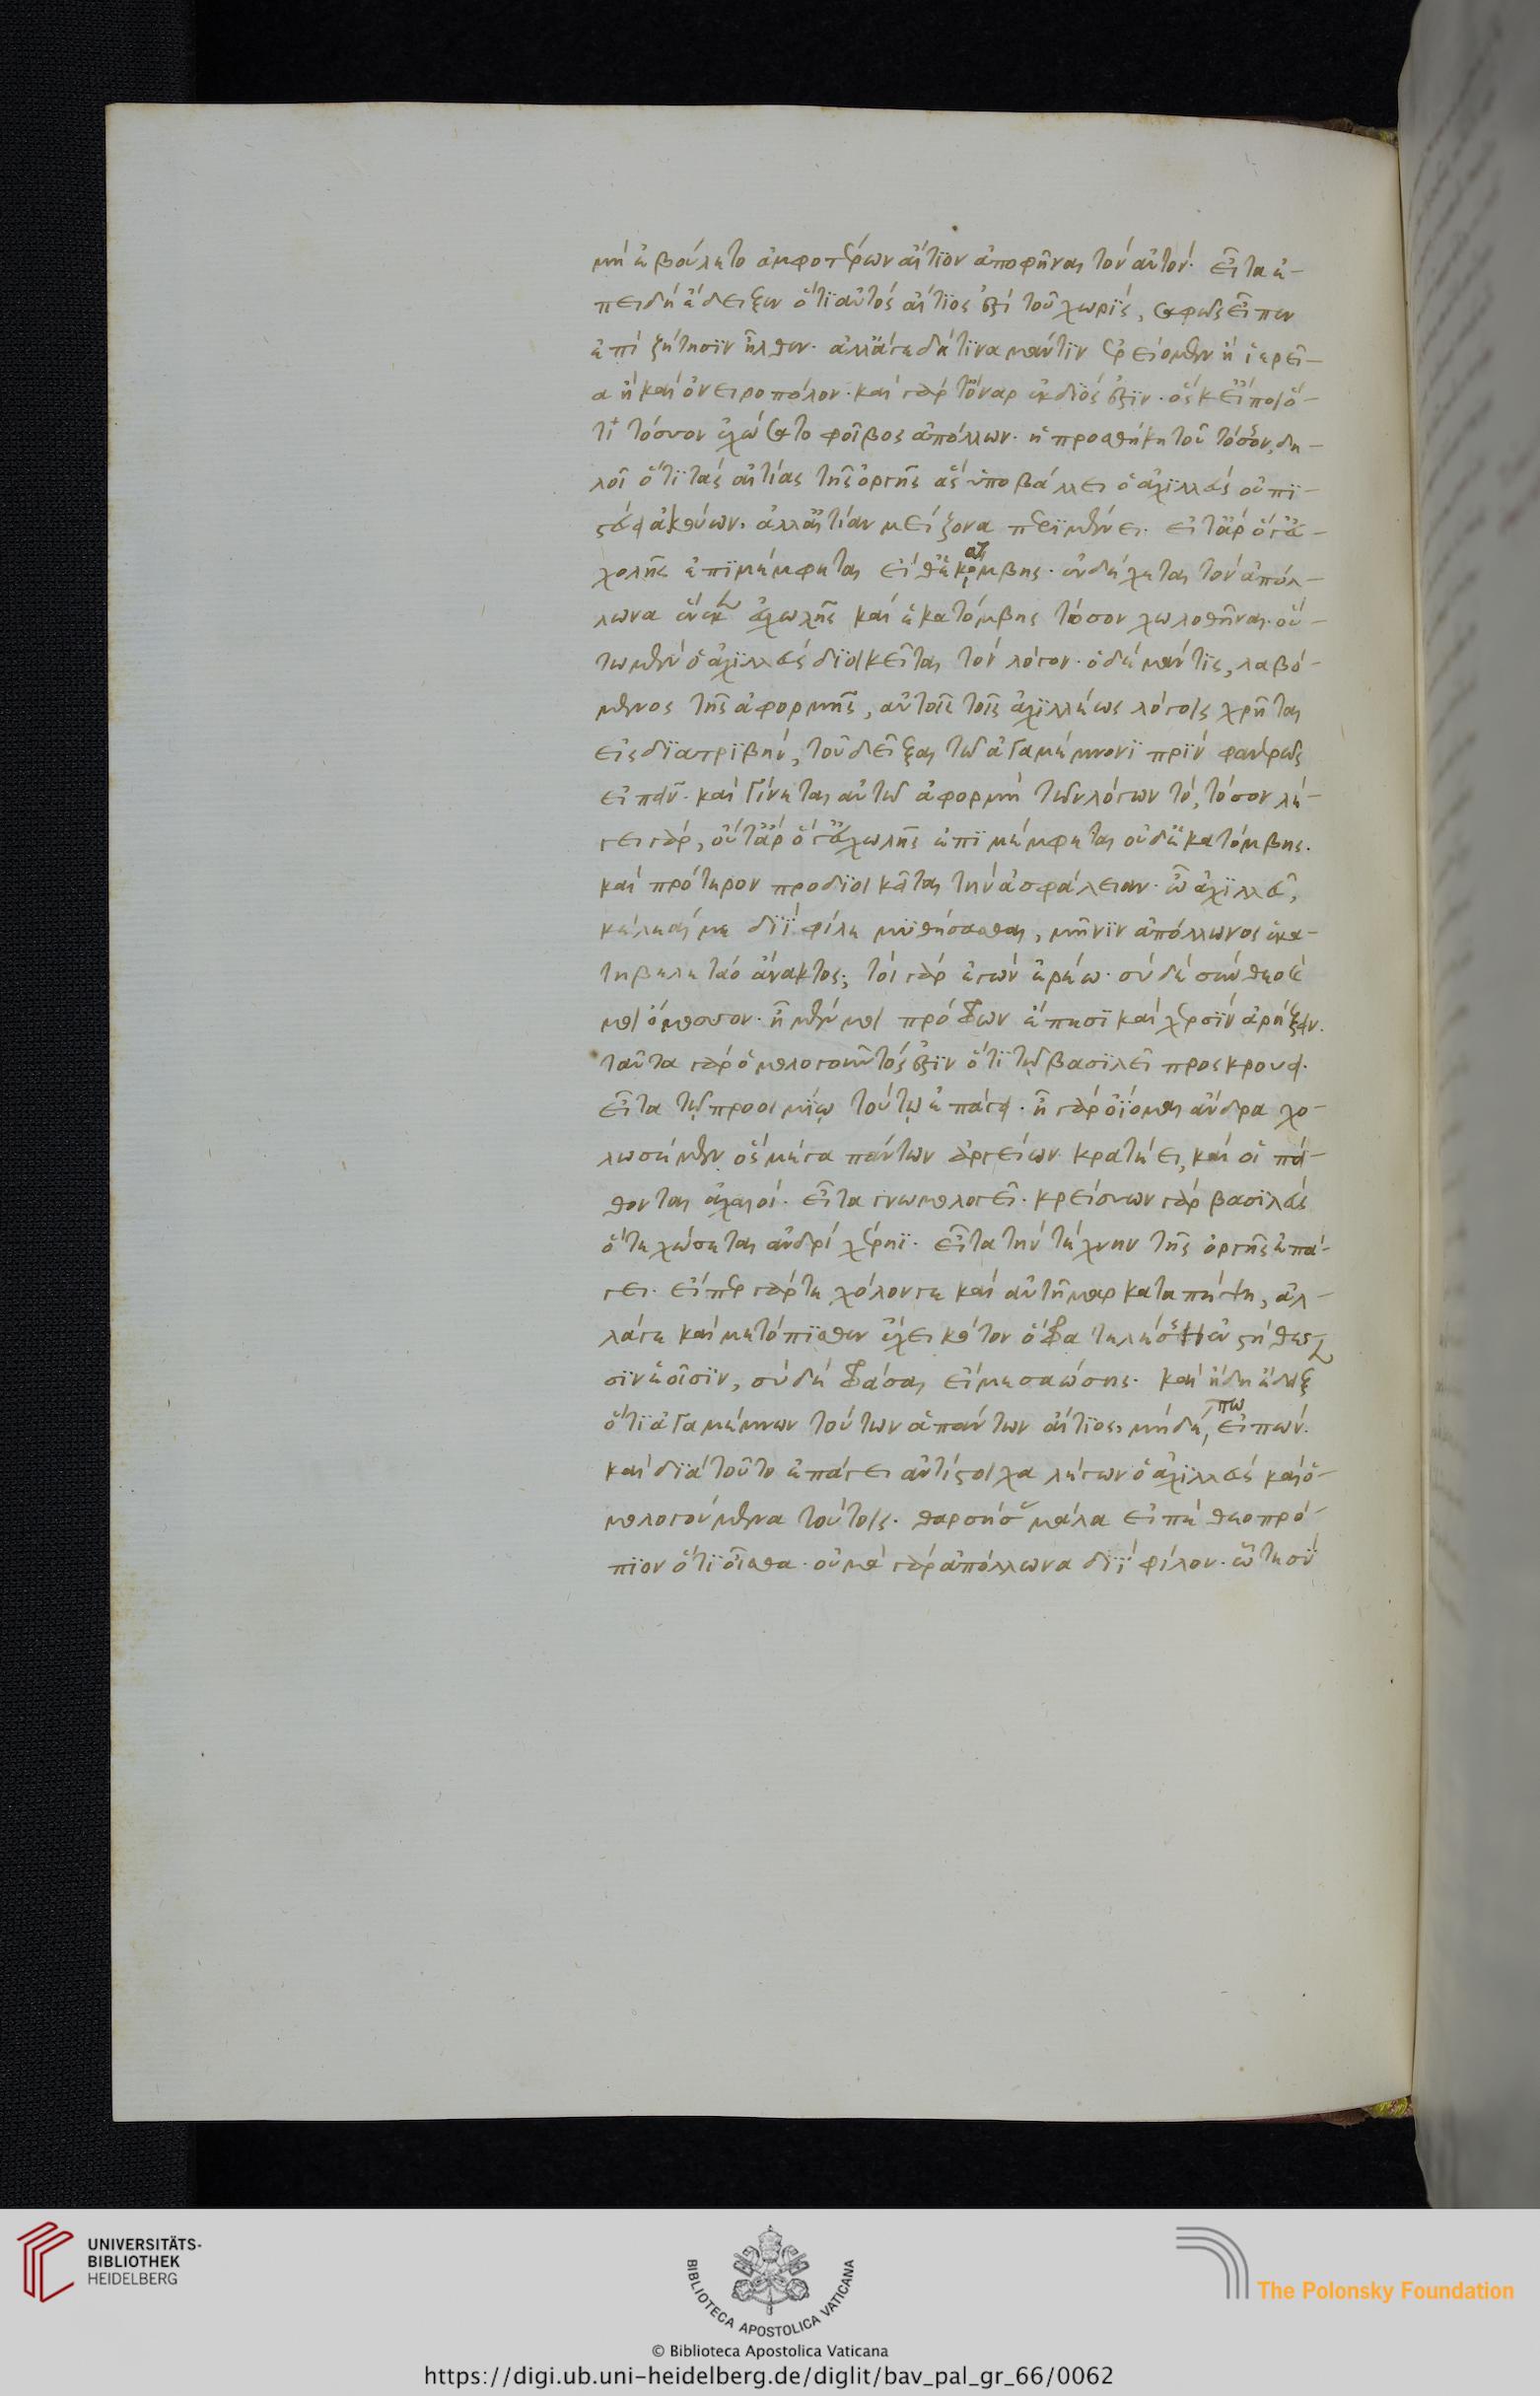 μὴ ἐβούλετο ἀμφοτέρων αἴτιον ἀποφῆναι τὸν αὐτόν. εἶτα ἐ-
πειδὴ ἔδειξεν ὅτι αὐτὸς αἴτιος ἐστὶ τοῦ χωρὶς, σαφῶς εἶπεν
ἐπὶ ζήτησιν ἦλθεν. ἀλλ' ἄγε δή τινα μάντιν ἐρείομεν ἢ ἱερῆ-
α ἢ καὶ ὀνειροπόλον. καὶ γάρ τ' ὄναρ ἐκ διός ἐστιν. ὅς κ' εἴποι ὅ-
τι τόσσον ἐχώσατο φοῖβος ἀπόλλων. ἡ προσθήκη τοῦ τόσσον, δη-
λοῖ ὅτι τὰς αἰτίας τῆς ὀργῆς ἃς ὑποβάλλει ὁ ἀχιλλεὺς οὐ πι-
στεύει ἀκούων. ἀλλ' αἰτίαν μείζονα περιμένει. εἴτ' ἄρ ὅγ' εὐ-
χολῆς ἐπιμέμφεται εἴθ' ἑκατόμβης. ἐνδέχεται τὸν ἀπόλ-
λωνα ἕνεκ εὐχωλῆς καὶ ἑκατόμβης τόσον χωλοθῆναι. οὕ-
τω μὲν ὁ ἀχιλλεὺς διοικεῖται τὸν λόγον. ὁ δὲ μάντις, λαβό-
μενος τῆς ἀφορμῆς, αὐτοῖς τοῖς ἀχιλλέως λόγοις χρῆται
εἰς διατριβὴν, τοῦ δεῖξαι τῶ ἀγαμέμνονι πρὶν φανερῶς
εἰπεῖν. καὶ γίνεται αὐτῶ ἀφορμὴ τῶν λόγων τὸ, τόσον λέ-
γει γὰρ, οὔτ' ἄρ ὅγ' εὐχωλῆς ἐπιμέμφεται οὐδ' ἑκατόμβης.
καὶ πρότερον προδιοικεῖται τὴν ἀσφάλειαν. ὦ ἀχιλλεῦ,
κέλεαί με διὶ φίλε μυθήσασθαι, μῆνιν ἀπόλλωνος ἑκα-
τηβελέταο ἄνακτος, τοὶ γὰρ ἐγὼν ἐρέω. σὺ δὲ σύνθεο καὶ
μοι ὄμοσσον. ἦ μέν μοι πρόφρων ἔπεσι καὶ χερσὶν ἀρήξειν.
ταῦτα γὰρ ὁμολογοῦντός ἐστιν ὅτι τῷ βασιλεῖ προσκρούει.
εἶτα τῷ προοιμίῳ τούτῳ ἐπάγει. ἦ γὰρ ὀΐομαι ἄνδρα χο-
λωσέμεν ὃς μέγα πάντων ἀργείων κρατέει, καὶ οἱ πεί-
θονται ἀχαιοί. εἶτα γνωμολογεῖ. κρείσσων γὰρ βασιλεὺς
ὅτε χώσεται ἀνδρὶ χέρηι. εἶτα τὴν τέχνην τῆς ὀργῆς ἐπά-
γει. εἴπερ γάρ τε χόλον γε καὶ αὐτῆμαρ καταπέψη, ἀλ-
λά γε καὶ μετόπισθεν ἔχει κότον ὄφρα τελέσση ἐν στήθεσ
σιν ἑοῖσιν, σὺ δὲ φράσαι εἴ με σαώσης. καὶ ἤδη ἔδειξ
ὅτι ἀγαμέμνων τούτων ἁπάντων αἴτιος, μηδέπω εἰπών.
καὶ διὰ τοῦτο ἐπάγει ἀντίστοιχα λέγων ὁ ἀχιλλεὺς καὶ ὁ-
μολογούμενα τούτοις. θαρσήσας μάλα εἰπὲ θεοπρό-
πιον ὅτι οἶσθα. οὐ μὰ γὰρ ἀπόλλωνα διὶ φίλον. ᾧτε σὺ
UNIVERSITÄTS-
BIBLIOTHEK
HEIDELBERG
BIBLIOTECA APOSTOLICA VATICANA
The Polonsky Foundation
© Biblioteca Apostolica Vaticana
https://digi.ub.uni-heidelberg.de/diglit/bav_pal_gr_66/0062